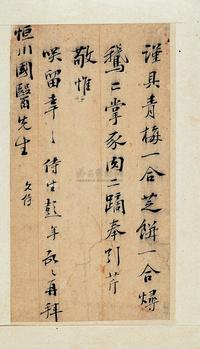 謹具青梅一合芝餅一合燖
鵞二掌豕肉二蹄奉引芹
敬惟
咲留幸幸侍生彭年再拜
恒川國醫先生